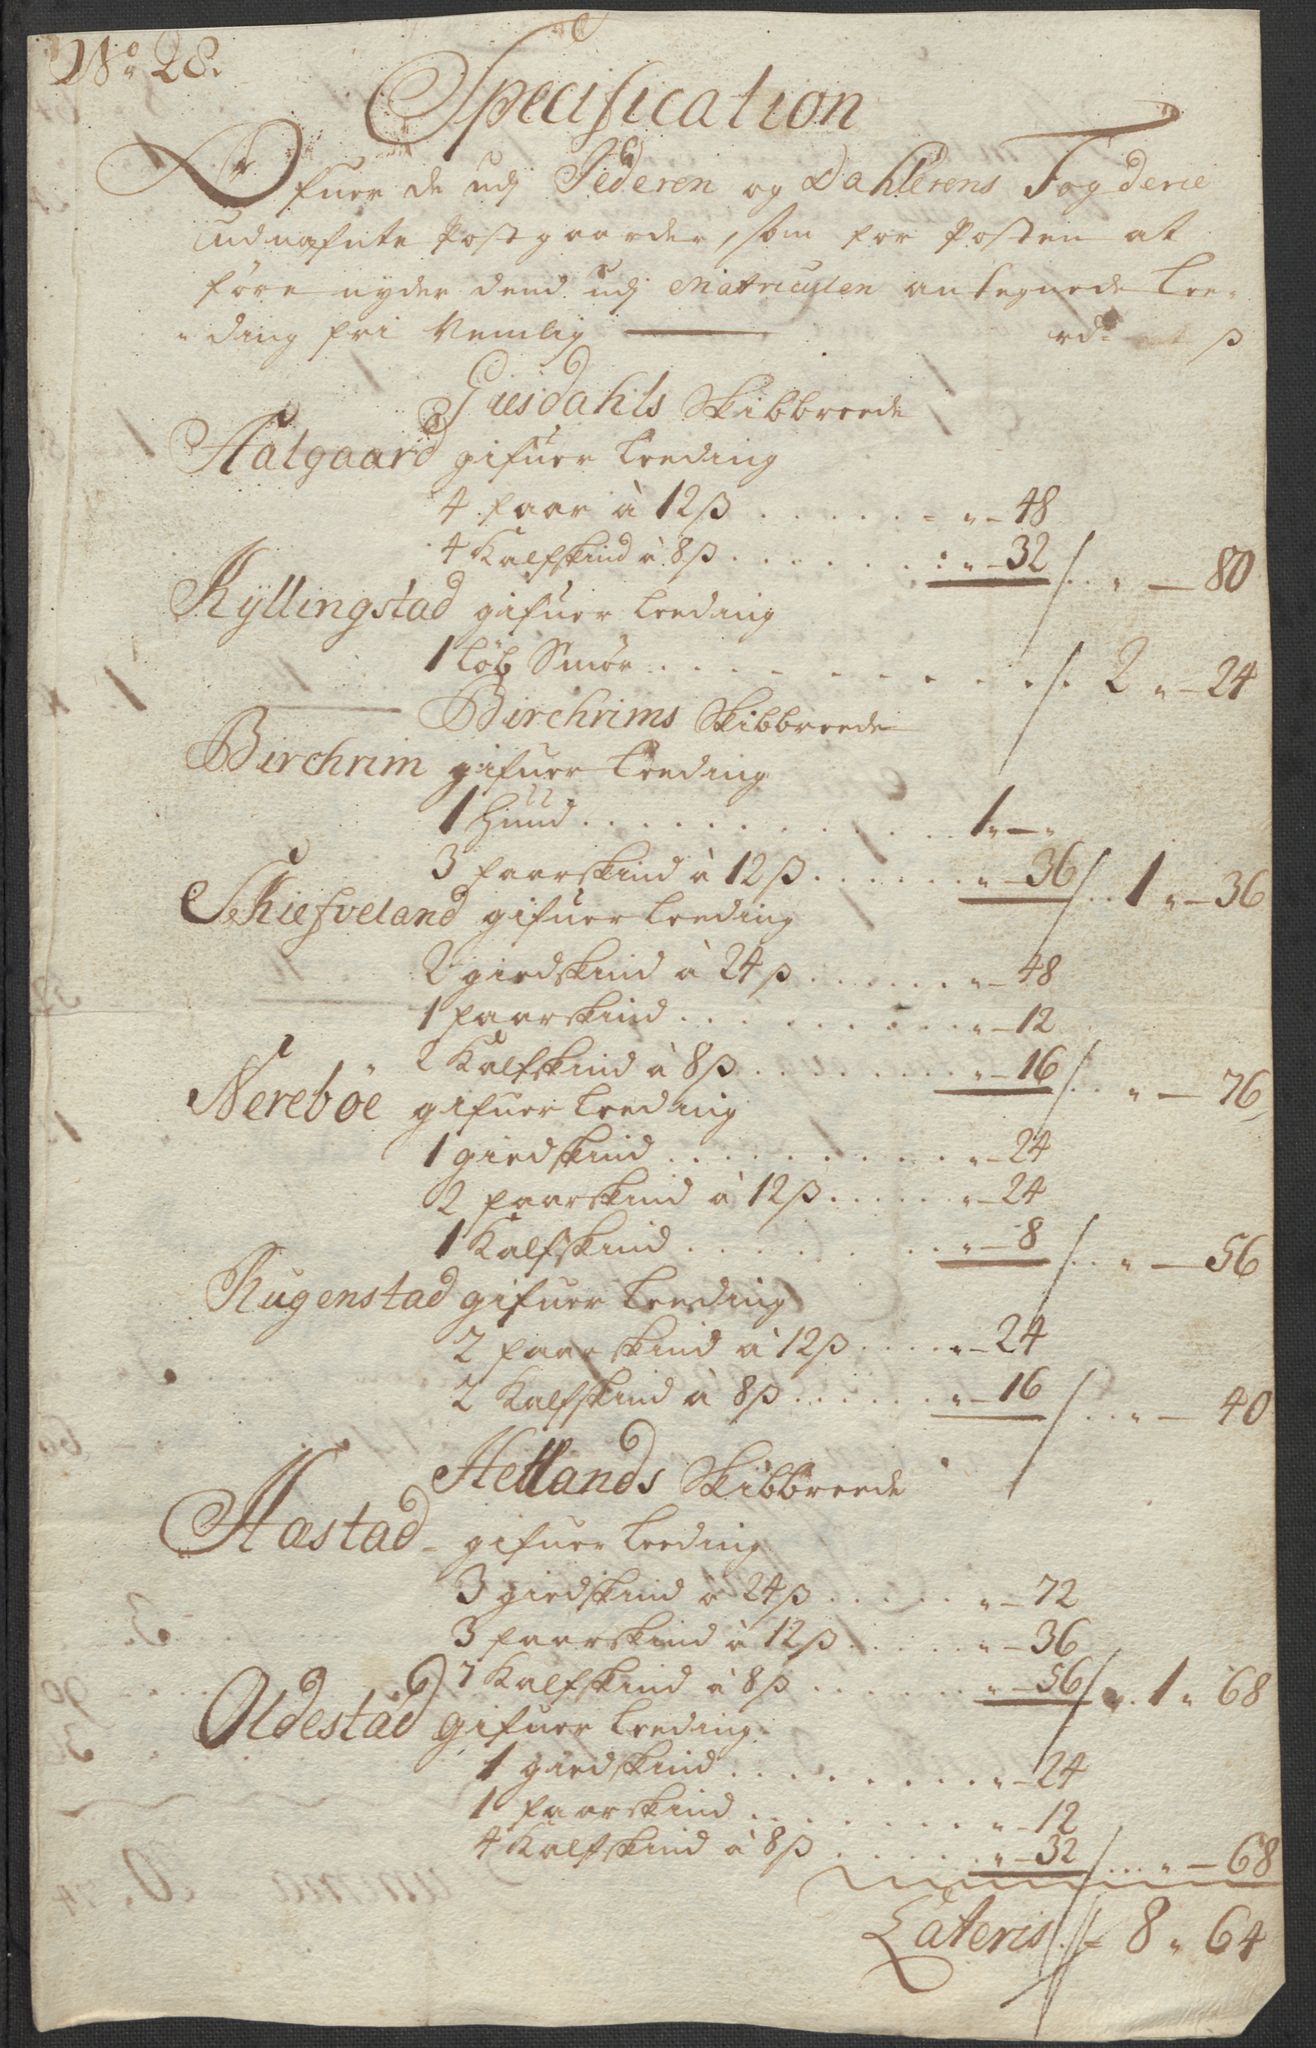 No 28.
Specification
Ofuer de udj Jederen og Dahlerens Fogderie
udnafnte Postgaarder, som for Posten at
føre nyder dend udj Matriculen antegnede Lee-
ding fri Nemlig —— rd: ß
Giesdahls Skibbreede
Aalgaard gifuer Leeding
4 faar à 12 ß . . . . . . „ — 48
4 Kalfskind à 8 ß . . . . . . „ — 32 /. . „ — 80
Kyllingstad gifuer Leeding
1 Løb Smør . . . . . . . . /. 2 „ — 24
Birchrims Skibbreede
Birchrim gifuer Leeding
1 Huud . . . . . . . . . . . 1 „ — „
3 faarskind à 12 ß . . . . . . „ — 36 /. . 1 „ — 36
Schiefveland gifuer Leeding
2 giedskind à 24 ß . . . . . . „ — 48
1 faarskind . . . . . . . . . „ — 12
2 Kalfskind à 8 ß . . . . . . . „ — 16 /. . „ — 76
Nereböe gifuer Leeding
1 giedskind . . . . . . . . . „ — 24
2 faarskind à 12 ß . . . . . „ — 24
1 Kalfskind . . . . . . . . „ — 8 /. . „ — 56
Rugenstad gifuer Leeding
2 faarskind à 12 ß . . . . „ — 24
2 Kalfskind à 8 ß . . . . . . „ — 16 /. . „ — 40
Hellands Skibbreede
Hæstad - gifuer Leeding
3 giedskind à 24 ß . . . . . „ — 72
3 faarskind à 12 ß . . . . . „ — 36
7 Kalfskind à 8 ß . . . . . . „ — 56 /. . 1 „ 68
Oldestad gifuer Leeding
1 giedskind . . . . . . . . „ — 24
1 faarskind . . . . . . . . „ — 12
4 Kalfskind à 8 ß . . . . . „ — 32 /. . . „ — 68
Lateris /. 8 „ 64